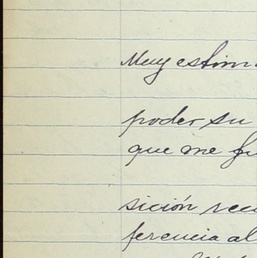 Muy estim
poder su
que me fu
sición rec
ferencia al